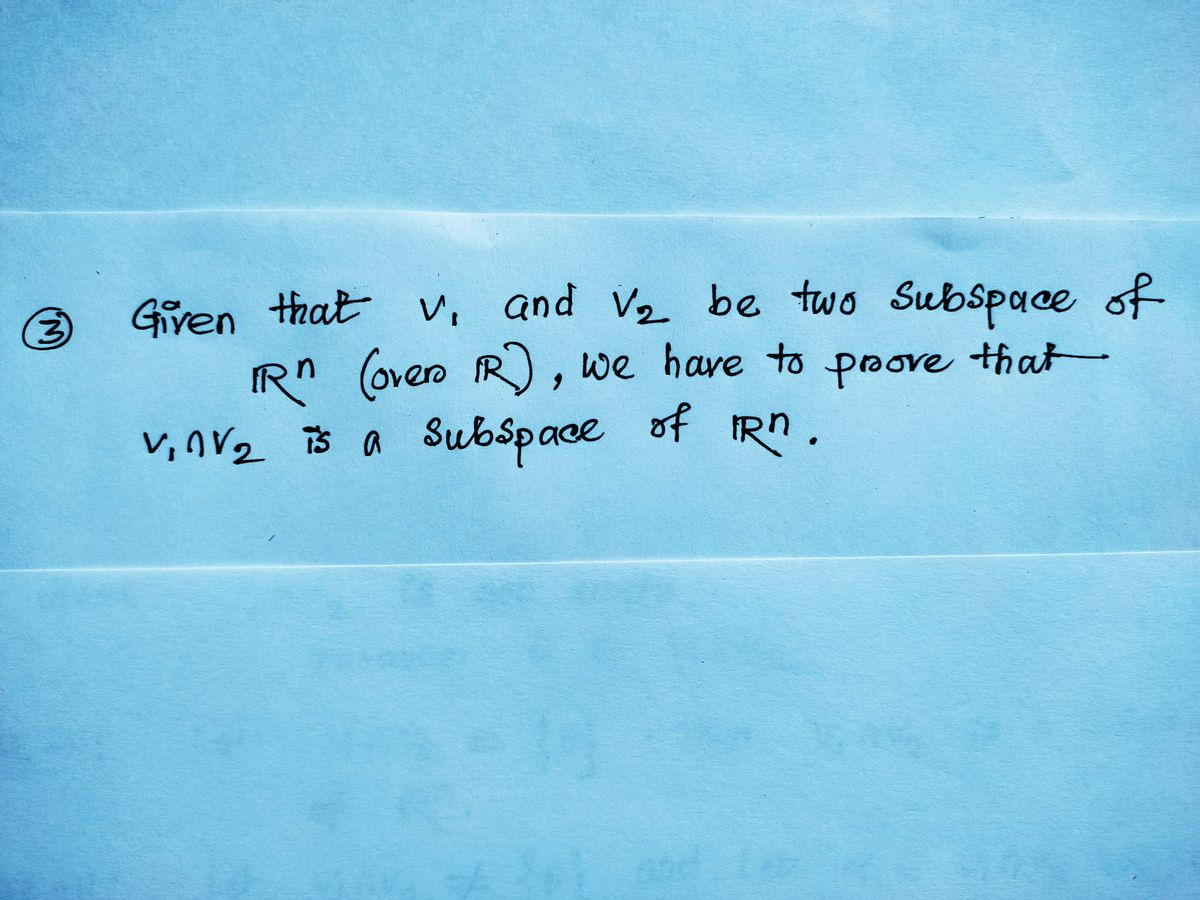 ③ Given that V₁ and V₂ be two subspace of
ℝⁿ (over ℝ), we have to prove that
V₁∩V₂ is a subspace of ℝⁿ.